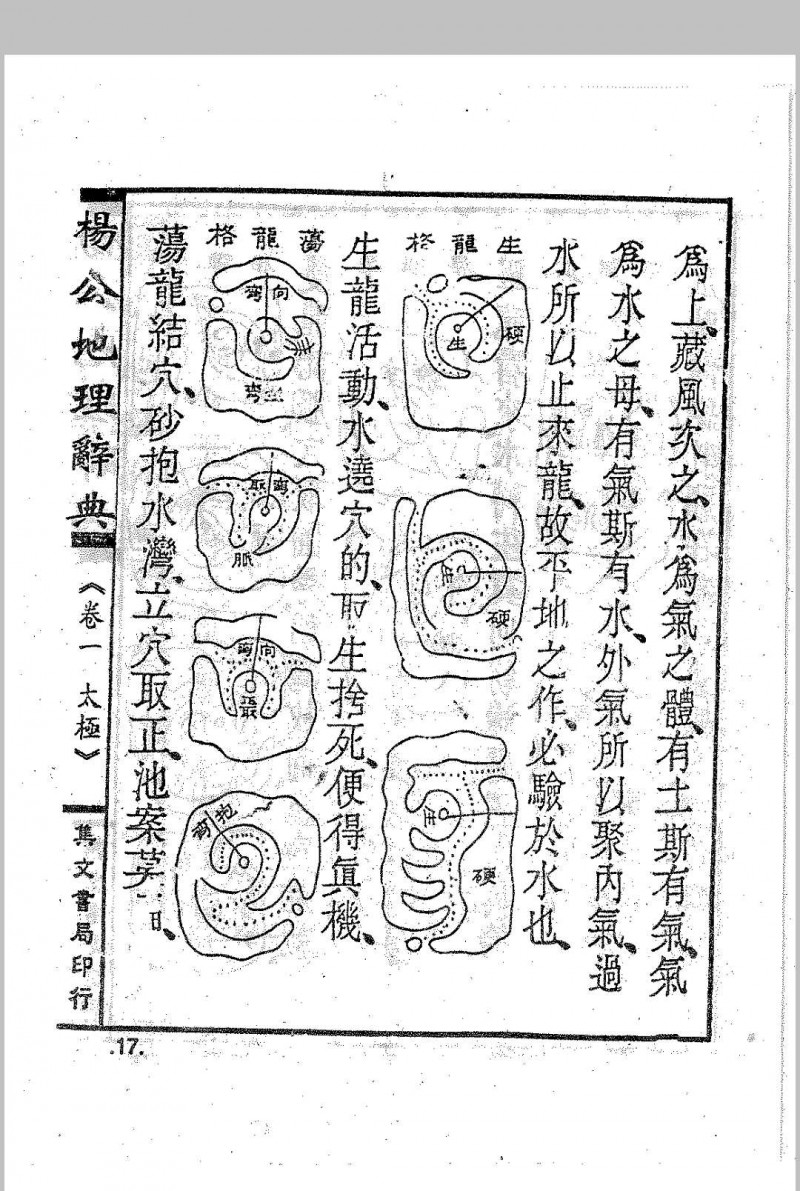 為上、藏風次之、水為氣之體、有土斯有氣、氣
為水之母、有氣斯有水、外氣所以聚內氣、過
水所以止來龍、故平地之作、必驗於水也、
生龍格
生 硬
生 硬
生 硬
生龍活動、水遶穴的、取生捨死、便得眞機、
蕩龍格
向 彎
彎
彎
脈
向 彎
抱 彎
蕩龍結穴、砂抱水灣、立穴取正、池案
楊公地理辭典
《卷一 太極》
集文書局印行
.17.